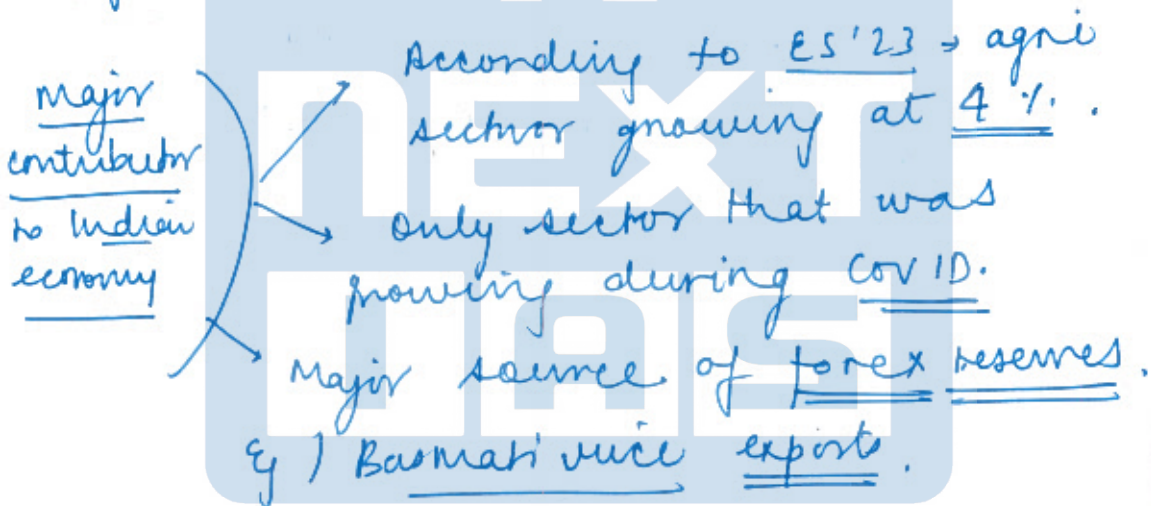 Major
contributor
to Indian
economy
According to ES'23 → agri
sector growing at 4 %.
Only sector that was
growing during COVID.
Major source of forex reserves.
Eg) Basmati rice exports.
NEXT
IAS